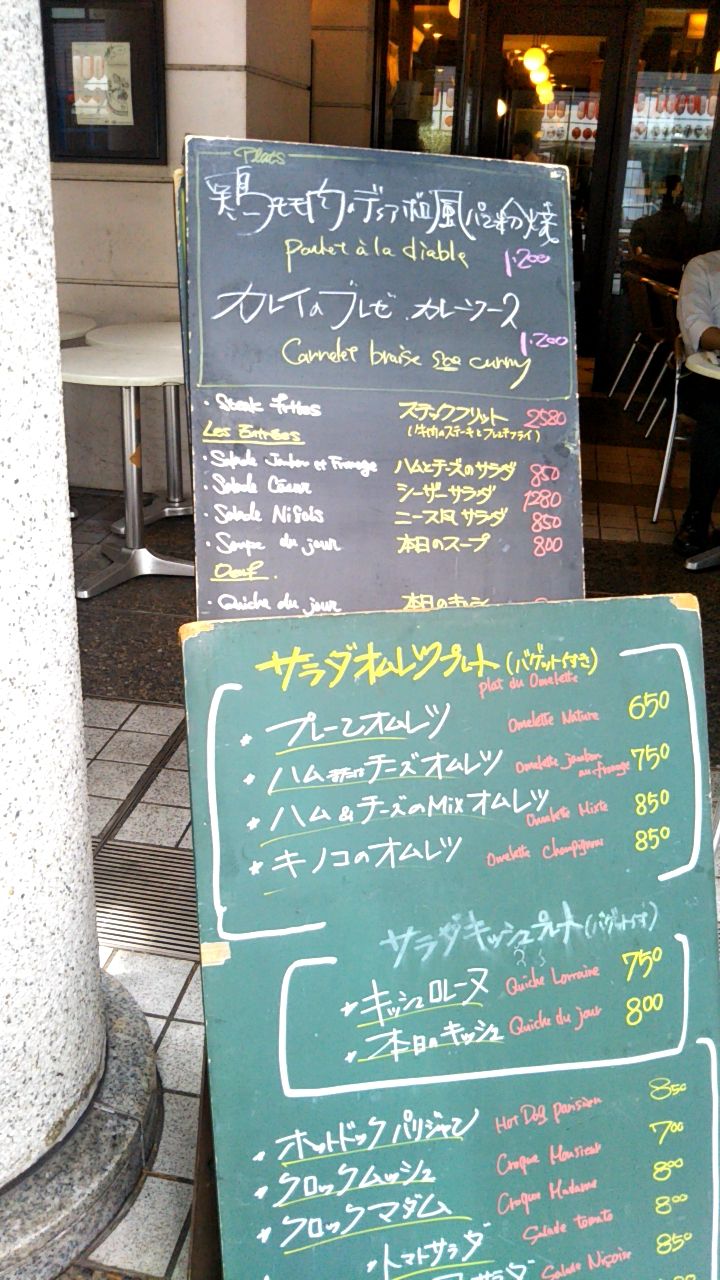 Plats
鶏モモ肉のディアボロ風パン粉焼
poulet à la diable 1.200
カレイのブレゼ.カレーソース
1.200
Carrelet braise sauce curry
・Steak frites ステックフリット 2580
(牛肉のステーキとフレンチフライ)
Les Entrées
・Salade Jambon et Fromage ハムとチーズのサラダ 850
・Salade César シーザーサラダ 1280
・Salade Niçois ニース風サラダ 850
・Soupe du jour 本日のスープ 800
Oeuf.
・Quiche du jour 本日のキッシュ
サラダオムレツプレート(バゲット付き)
plat du Omelette
* プレーンオムレツ Omelette Nature 650
* ハムまたはチーズオムレツ Omelette jambon ou fromage 750
* ハム&チーズのMixオムレツ Omelette Mixte 850
* キノコのオムレツ Omelette Champignons 850
サラダキッシュプレート(バゲット付)
* キッシュロレーヌ Quiche Lorraine 750
* 本日のキッシュ Quiche du jour 800
* ホットドックパリジャン Hot Dog parisien 850
* クロックムッシュ Croque Monsieur 700
* クロックマダム Croque Madame 800
* トマトサラダ Salade tomato 800
サラダ Salade Niçoise 850